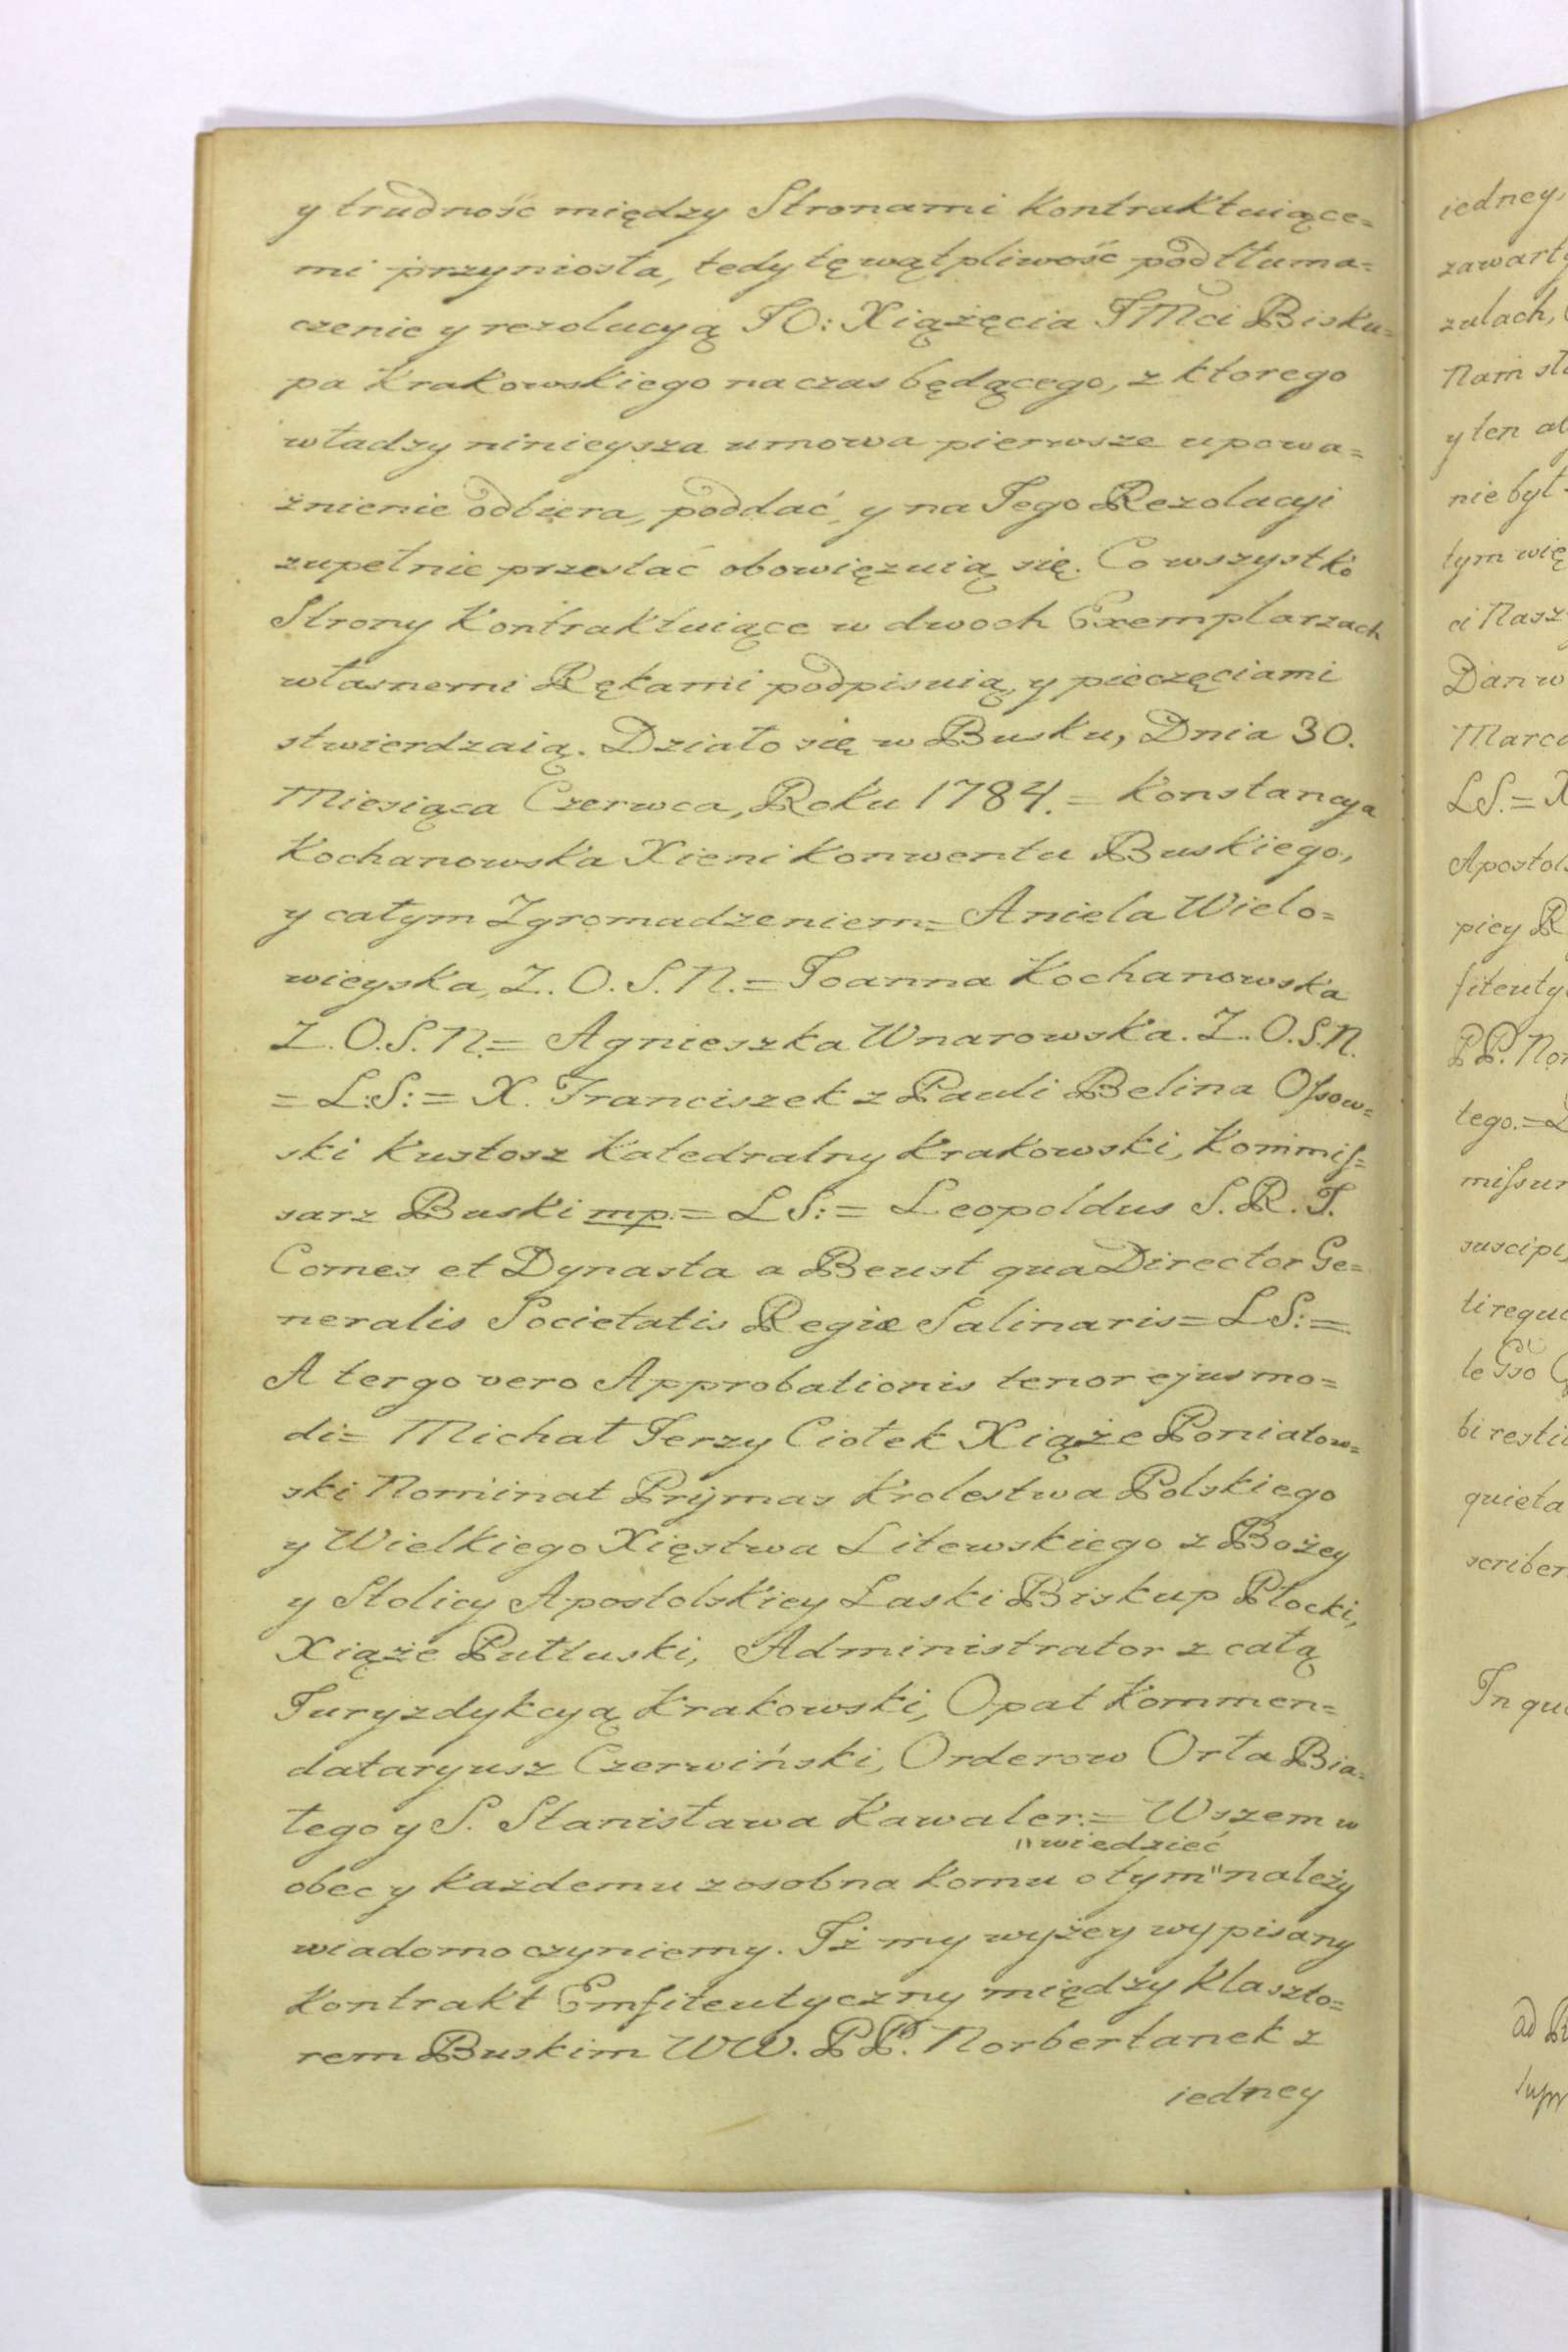 y trudność między Stronami Kontraktuiące=
mi przyniosła, tedy tę wątpliwość pod tłuma=
czenie y rezolucyą JO: Xiążęcia JMci Bisku=
pa Krakowskiego na czas będącego, z ktorego
władzy ninieysza umowa pierwsze upowa=
żnienie odbiera, poddać, y na Jego Rezolucyi
zupełnie przestać obowięzuią się. Co wszystko
Strony Kontraktuiące w dwoch Exemplarzach
własnemi Rękami podpisuią, y pieczęciami
stwierdzaią. Działo się w Busku, Dnia 30.
Miesiąca Czerwca, Roku 1784. = Konstancya
Kochanowska Xieni Konwentu Buskiego,
y całym Zgromadzeniem = Aniela Wielo=
wieyska, Z. O. S. N. = Joanna Kochanowska
Z. O. S. N. = Agnieszka Wnarowska. Z. O. S. N.
= L:S: = X. Franciszek z Pauli Belina Ossow=
ski Kustosz Katedralny Krakowski, Kommis=
sarz Buski mp: = LS: = Leopoldus S. R. J.
Comes et Dynasta a Beust qua Director Ge=
neralis Societatis Regiæ Salinaris = LS: =
A tergo vero Approbationis tenor ejusmo=
di = Michał Jerzy Ciołek Xiąże Poniatow=
ski Nominat Pryjmas Krolestwa Polskiego
y Wielkiego Xięstwa Litewskiego z Bożey
y Stolicy Apostolskiey Łaski Biskup Płocki,
Xiąże Pułtuski, Administrator z całą
Juryzdykcyą Krakowski, Opat Kommen=
dataryusz Czerwiński, Orderow Orła Bia=
łego y S. Stanisława Kawaler. = Wszem w
"wiedzieć
obec y każdemu z osobna komu o tym" należy
wiadomo czyniemy. Iż my wyżey wypisany
Kontrakt Emfiteutyczny między Klaszto=
rem Buskim WW. PP. Norbertanek z
iedney
iedney,
zawart
zulach,
Nam
y ten
nie był
tym wię
ci Nasz
Dan w
Marc
LS. = X
Apostol
piey R
fiteuty
PP. Nor
tego. =
missur
suscipi
ti requi
bi resti
quieta
scriben
In qu